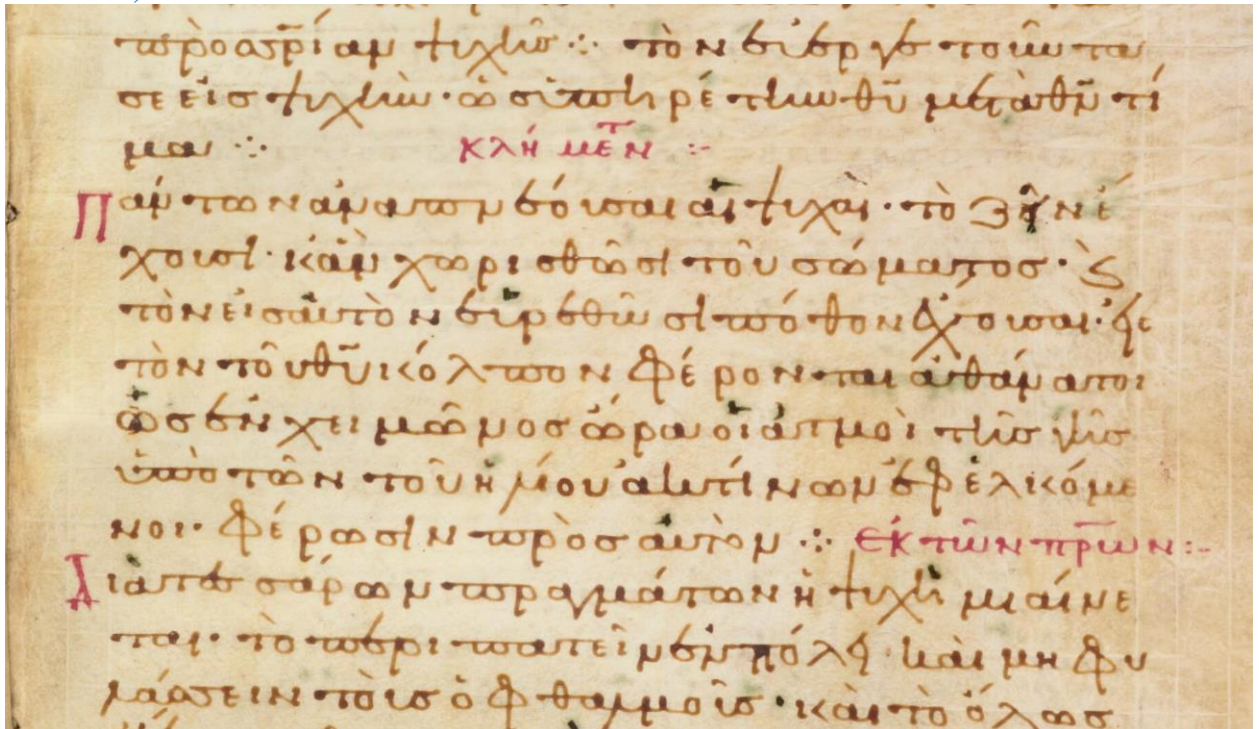 πρὸς π̅ρ̅ίαν ψυχῆς ⁘ τὸν εὐεργετοῦντα
σε εἰς ψυχὴν· ὡς ὑπηρέτην θ̅υ̅ μετὰ θ̅ν̅ τί
μα ⁘ κλήμεντ :-
Πάντων ἀνάπτον εόυσαι αἱ ψυχαι· τὸ ζῆν ἔ
χουσι· κἂν χωρισθῶσι τοῦ σώματος· καὶ
τὸν εἰς αὐτὸν εὑρεθῶσι πόθον ἔχουσαι· εἰς
τὸν τοῦ θ̅υ̅ κόλπον φέρονται ἀθάνατοι
ὡς ἐν χειμῶνος ὥρα οἱ ἀτμοὶ τῆς γῆς
ὑπὸ τῶν τοῦ ἡλίου ἀκτίνων ἐφελκόμε
νοι· φέρωσιν πρὸς αὐτόν ⁘ ἐκ τῶν π̅ρ̅ων :-
Διὰ τεσάρων πραγμάτων ἡ ψυχὴ μιαίνε
ται· τὸ περιπατεῖν ἐν πόλει· καὶ μὴ φυ
λάσσειν τοῖς ὀφθαλμοῖς· καὶ τὸ ὅλως